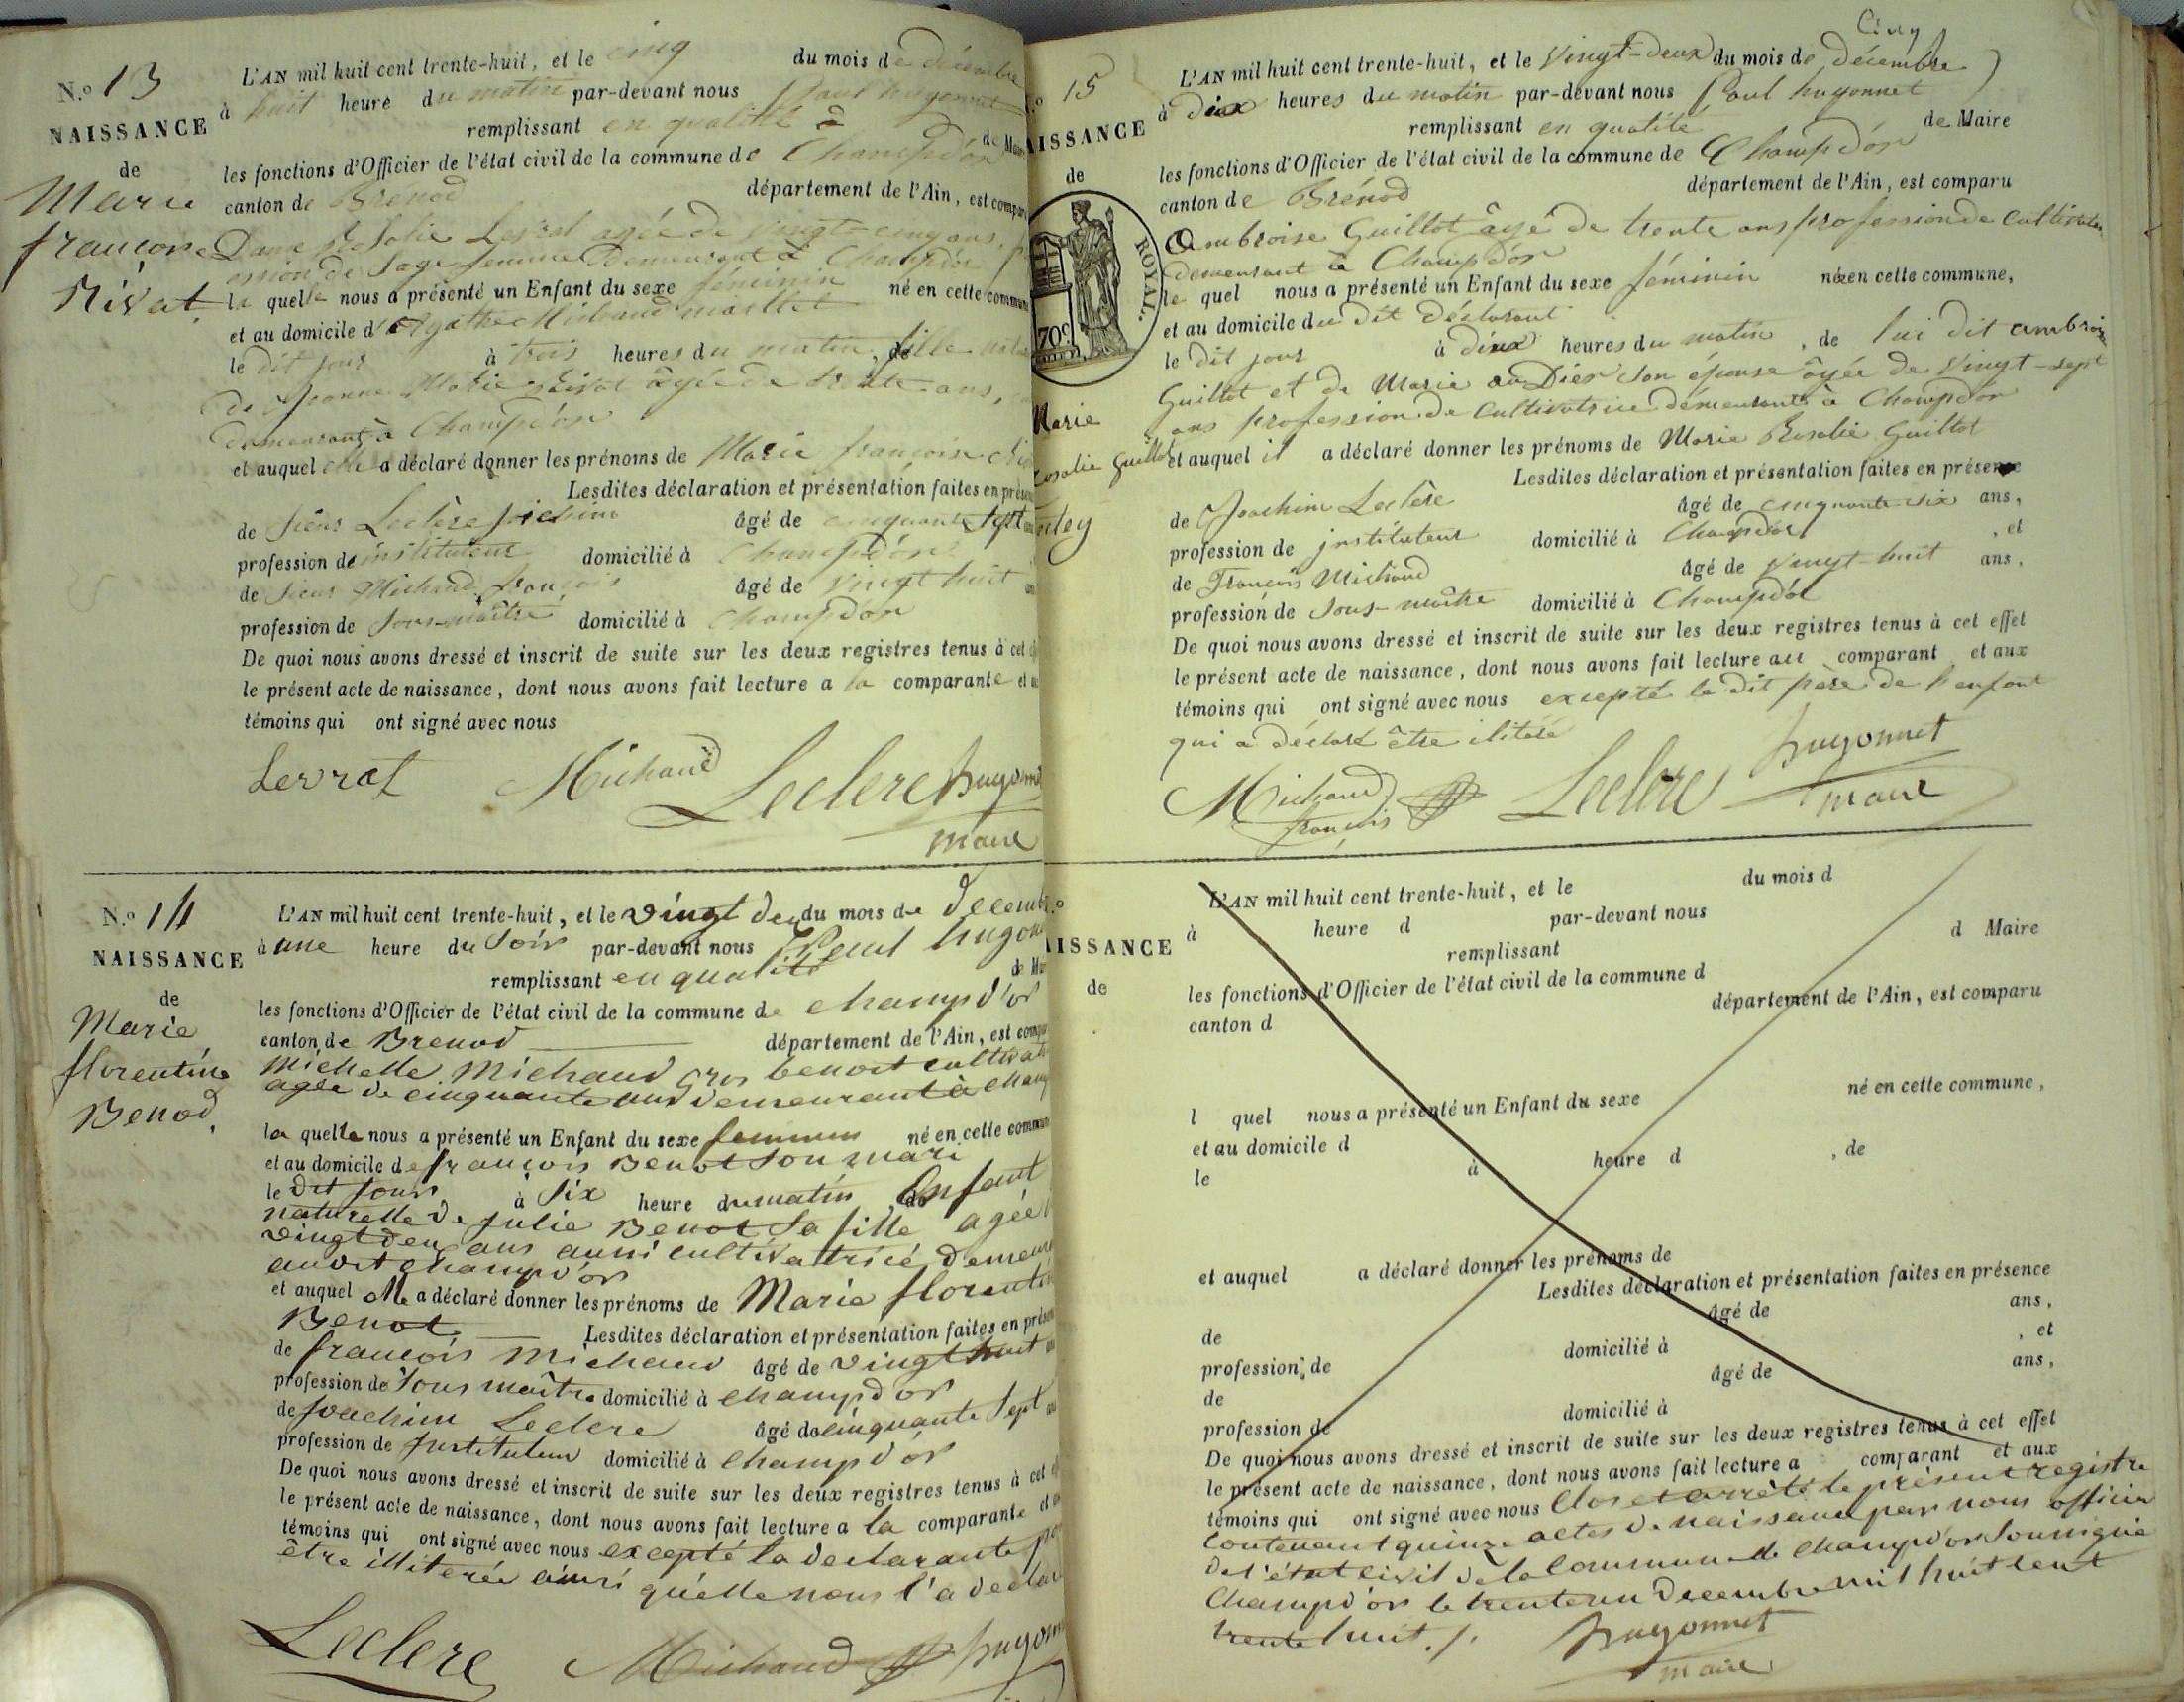 N.º 13
NAISSANCE
de
Marie
francoise
Rivat
L'AN mil huit cent trente-huit, et le cinq du mois de décembre
à huit heure du matin par-devant nous Paul huyonnet
remplissant en qualité de
les fonctions d'Officier de l'état civil de la commune de Champdor
canton de Brénod département de l'Ain, est
Levrat agée de vingt-cinq ans,
Sage femme Demeurant à Champdor
la quelle nous a présenté un Enfant du sexe féminin né en cette
et au domicile d'Agathe Michaud maillet
le dit jour à trois heures du matin, de fille
de Jeanne Marie Rivat âgée de trente ans,
demeurant à Champdor
et auquel elle a déclaré donner les prénoms de Marie françoise
Lesdites déclaration et présentation faites en
de Siéur Leclère Joachim âgé de cinquante sept
profession de instituteur domicilié à Champdor
de Sieur Michaud françois âgé de vingt huit
profession de Sous-maître domicilié à Champdor
De quoi nous avons dressé et inscrit de suite sur les deux registres tenus à cet
le présent acte de naissance, dont nous avons fait lecture a la comparante et
témoins qui ont signé avec nous
Levrat Michaud Leclere huyonnet
maire
N.º 14
NAISSANCE
de
Marie
florentine
Benod
L'AN mil huit cent trente-huit, et le vingt deu du mois de decemb
à une heure du Soir par-devant nous Paul huyon
remplissant en qualité de
les fonctions d'Officier de l'état civil de la commune de champd'or
canton de Brenod département de l'Ain, est
Michelle Michaud gros benoit
agée de cinquante ans demeurant à champ
la quelle nous a présenté un Enfant du sexe feminin né en cette
et au domicile de françois Benot son mari
le dit jour à Six heure du matin, de Enfant
naturelle de julie Benot Sa fille agée
vingt deu ans aussi cultivatrice demeur
audit champd'or
et auquel elle a déclaré donner les prénoms de Marie florentin
Benot Lesdites déclaration et présentation faites en
de françois michaud âgé de vingt huit
profession de Sous maître domicilié à champd'or
de joachim Leclere âgé de cinquante Sept
profession de Instituteur domicilié à champd'or
De quoi nous avons dressé et inscrit de suite sur les deux registres tenus à cet
le présent acte de naissance, dont nous avons fait lecture a la comparante et
témoins qui ont signé avec nous excepté la declarante
être illiterée ainsi qu'elle nous l'a
Leclere Michaud huyon
Cinq
15
AISSANCE
de
ROYAL.
70c
Marie
Rosalie Guillot
L'AN mil huit cent trente-huit, et le vingt-deux du mois de décembre
à dix heures du matin par-devant nous Paul huyonnet
remplissant en qualité de Maire
les fonctions d'Officier de l'état civil de la commune de Champdor
canton de Brénod département de l'Ain, est comparu
Ambroise Guillot âgé de trente ans profession de cultivateur
demeurant à Champdor
le quel nous a présenté un Enfant du sexe féminin née en cette commune,
et au domicile du dit déclarant
le dit jour à heures du matin, de lui dit ambroise
Guillot et de Marie son épouse âgée de vingt-sept
ans profession de cultivatrice demeurant à Champdor
et auquel il a déclaré donner les prénoms de Marie Rosalie Guillot
Lesdites déclaration et présentation faites en présence
de Joachim Leclère âgé de cinquante six ans,
profession de instituteur domicilié à Champdor, et
de François Michaud âgé de vingt-huit ans,
profession de Sous-maître domicilié à Champdor
De quoi nous avons dressé et inscrit de suite sur les deux registres tenus à cet effet
le présent acte de naissance, dont nous avons fait lecture au comparant et aux
témoins qui ont signé avec nous excepté le dit père de l'enfant
qui a déclaré être
Michaud Leclere huyonnet
françois maire
AISSANCE
de
L'AN mil huit cent trente-huit, et le du mois d
à heure d par-devant nous
remplissant d Maire
les fonctions d'Officier de l'état civil de la commune d
canton d département de l'Ain, est comparu
l quel nous a présenté un Enfant du sexe né en cette commune,
et au domicile d
le à heure d , de
et auquel a déclaré donner les prénoms de
Lesdites déclaration et présentation faites en présence
de âgé de ans,
profession de domicilié à , et
de âgé de ans,
profession de domicilié à
De quoi nous avons dressé et inscrit de suite sur les deux registres tenus à cet effet
le présent acte de naissance, dont nous avons fait lecture a comparant et aux
témoins qui ont signé avec nous Clos et arrêté le présent registre
contenant quinze actes de naissance par nous officier
de l'état civil de la commune de champd'or Soussigné
Champd'or le trente un decembre mil huit cent
trente huit
huyonnet
maire